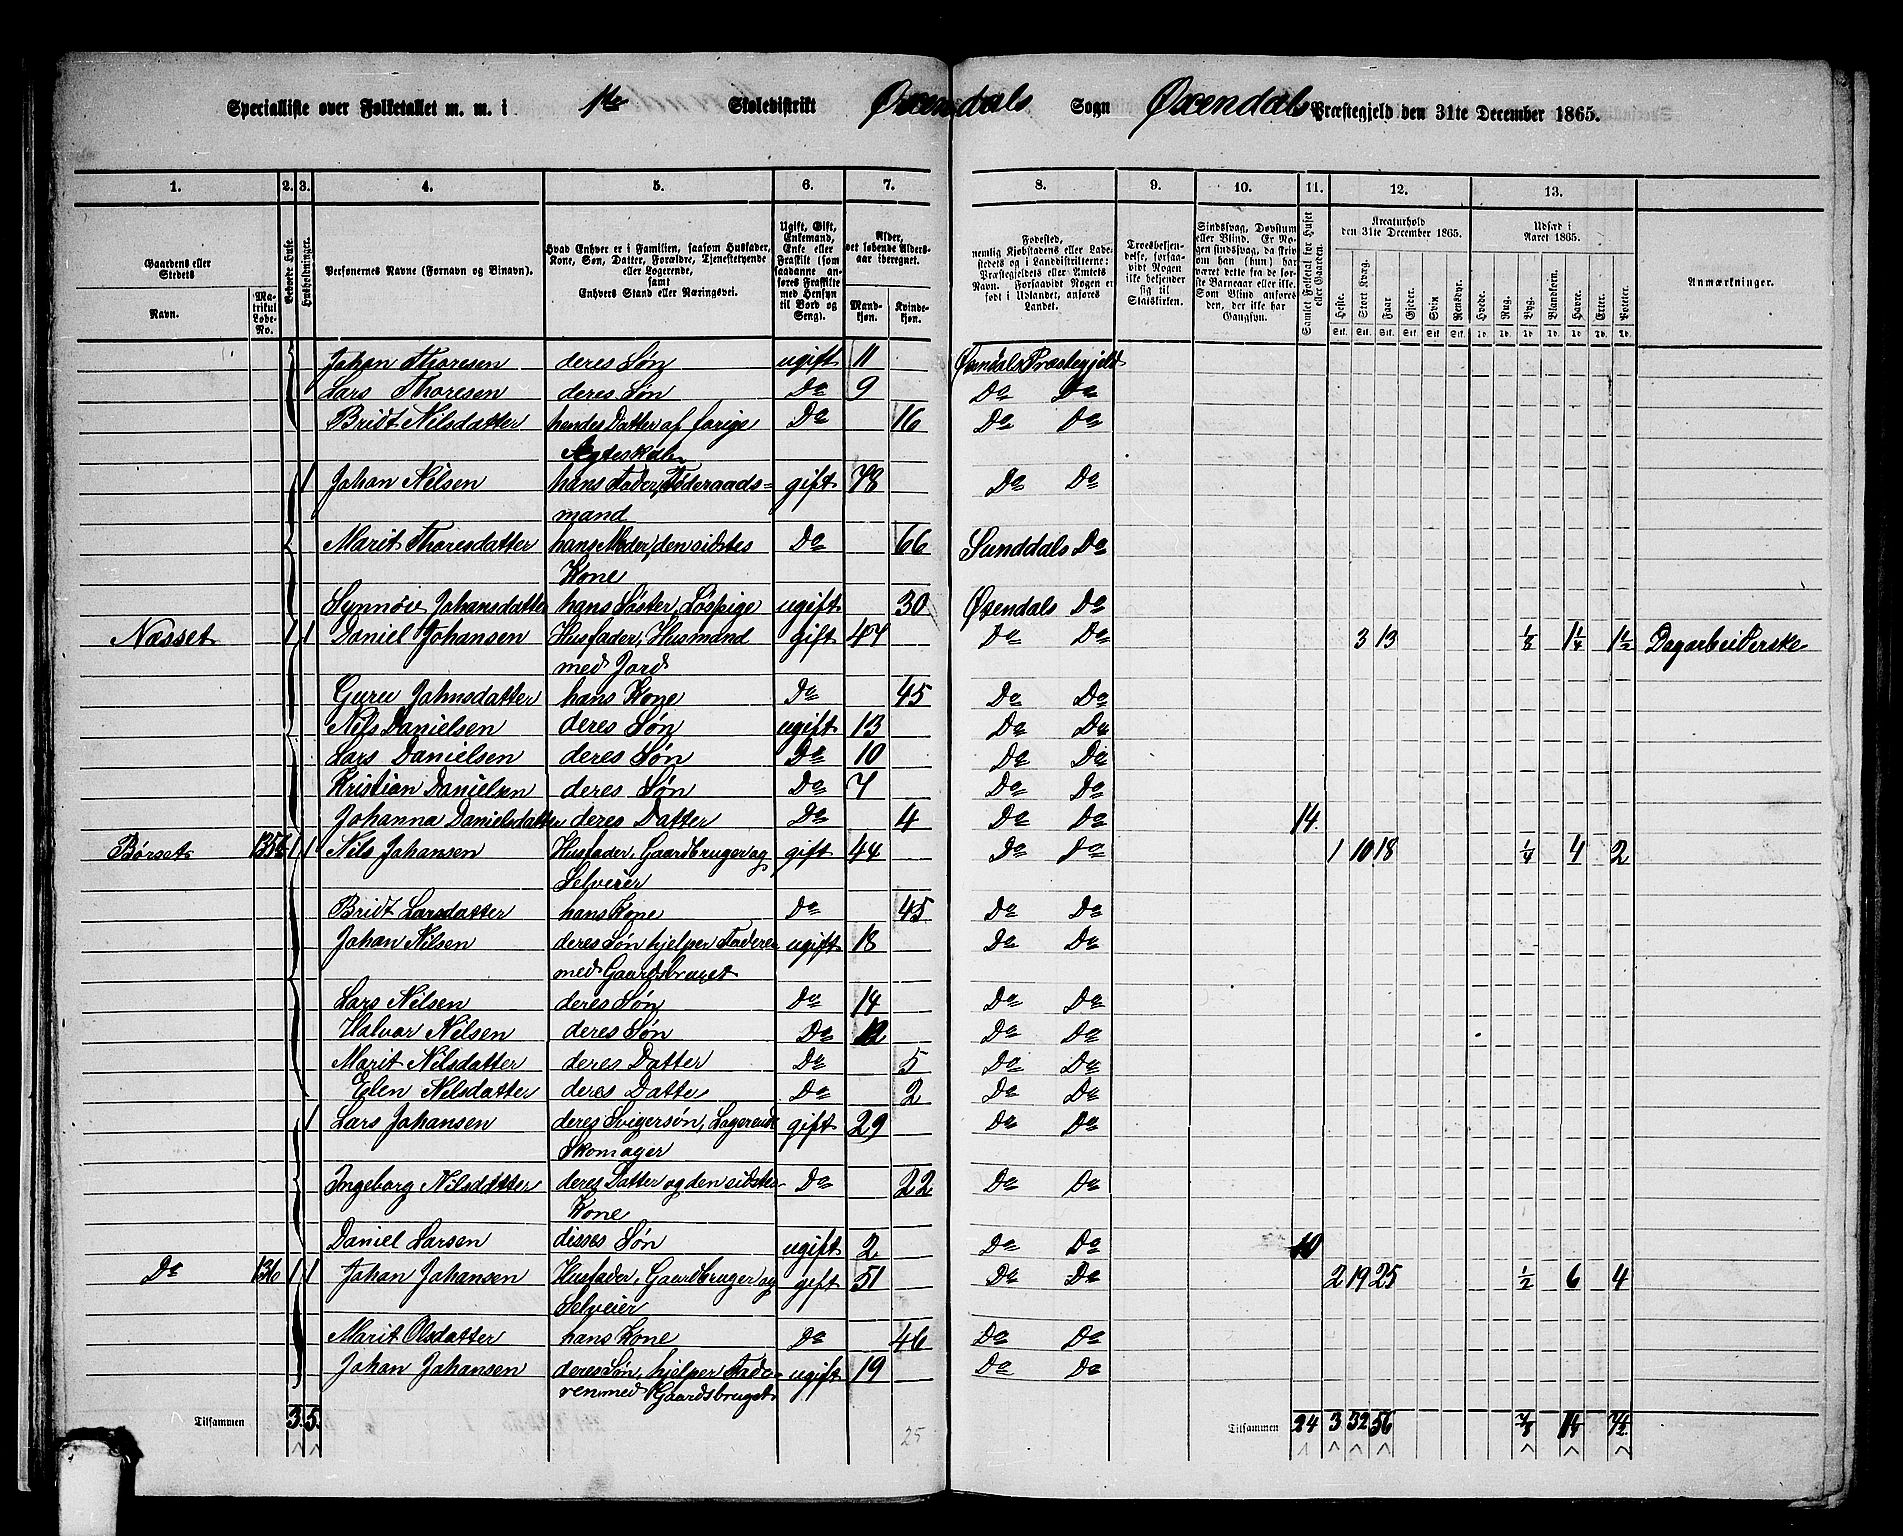 Specialliste over Folketallet m. m. i 1ste Skoledistrikt Øxendals Sogn Øxendals Præstegjeld den 31te December 1865.
1. 2. 3. 4. 5. 6. 7. 8. 9. 10. 11. 12. 13.
Gaardens eller Stedets
Navn. Matrikul Løbe-No.
Beboede Huse.
Husholdninger.
Personernes Navne (Fornavn og Binavn).
Hvad Enhver er i Familien, saasom Husfader, Kone, Søn, Datter, Forældre, Tjenestetyende eller Logerende, samt Enhvers Stand eller Næringsvei.
Ugift, Gift, Enkemand, Enke eller Fraskilt (som saadanne anføres Fraskilte med Hensyn til Bord og Seng).
Alder, det løbende Alders-aar iberegnet.
Mandkjøn. Kvindekjøn.
Fødested, nemlig Kjøbstadens eller Ladestedets og i Landdistrikterne: Præstegjeldets eller Amtets Navn. Forsaavidt Nogen er født i Udlandet, anføres Landet.
Troesbekjendelse, forsaavidt Nogen ikke bekjender sig til Statskirken.
Sindssvag, Døvstum eller Blind. Er Nogen sindssvag, da skriv om han (hun) har været dette fra de første Barneaar eller ikke. Som Blind anføres den, der ikke har Gangsyn.
Samlet Folketal for Huset eller Gaarden.
Kreaturhold den 31te December 1865.
Heste. Stort Kvæg. Faar. Gjeder. Svin Rensdyr.
Udsæd i Aaret 1865.
Hvede. Rug. Byg. Blandkorn. Havre. Erter. Poteter.
Anmærkninger.
Johan Thoresen deres Søn ugift 11 Øxendals Præstegjeld
Lars Thoresen deres Søn Do 9 Do Do
Bridt Nilsdatter hendes Datter af forige Do 16 Do Do
Ægteskab
1 Johan Nilsen hans Fader, Føderaads= gift 78 Do Do
mand
Marit Thoresdatter hans Moder, den sidstes Do 66 Sunddals Do
Kone
Synnøv Johansdatter hans Søster, Løspige ugift 30 Øxendals Do
Næsset 1 1 Daniel Johansen Husfader, Husmand gift 47 Do Do 3 13 1/8 1 1/4 1 1/2 Dagarbeiderske
med Jord
Guru Johnsdatter hans Kone Do 45 Do Do
Nils Danielsen deres Søn ugift 13 Do Do
Lars Danielsen deres Søn Do 10 Do Do
Kristian Danielsen deres Søn Do 7 Do Do
Johanna Danielsdatter deres Datter Do 4 Do Do 14
Børset 1 1 Nils Johansen Husfader, Gaardbruger og gift 44 Do Do 1 10 18 1/4 4 2
Selveier
Bridt Larsdatter hans Kone Do 45 Do Do
Johan Nilsen deres Søn hjelper Faderen ugift 18 Do Do
med Gaardsbruget
Lars Nilsen deres Søn Do 14 Do Do
Halvor Nilsen deres Søn Do 12 Do Do
Marit Nilsdatter deres Datter Do 5 Do Do
Elen Nilsdatter deres Datter Do 2 Do Do
1 Lars Johansen deres Svigersøn, Logerende gift 29 Do Do
Skomager
Ingeborg Nilsdatter deres Datter og den sidstes Do 22 Do Do
Kone
Daniel Larsen disses Søn ugift 2 Do Do 10
Do 136 1 1 Johan Johansen Husfader, Gaardbruger og gift 51 Do Do 2 19 25 1/2 6 4
Selveier
Marit Olsdatter hans Kone Do 46 Do Do
Johan Johansen deres Søn, hjelper Fade- ugift 19 Do Do
ren med Gaardsbruget
Tilsammen 3. 5. Tilsammen 24 3 32 56 7/8
25